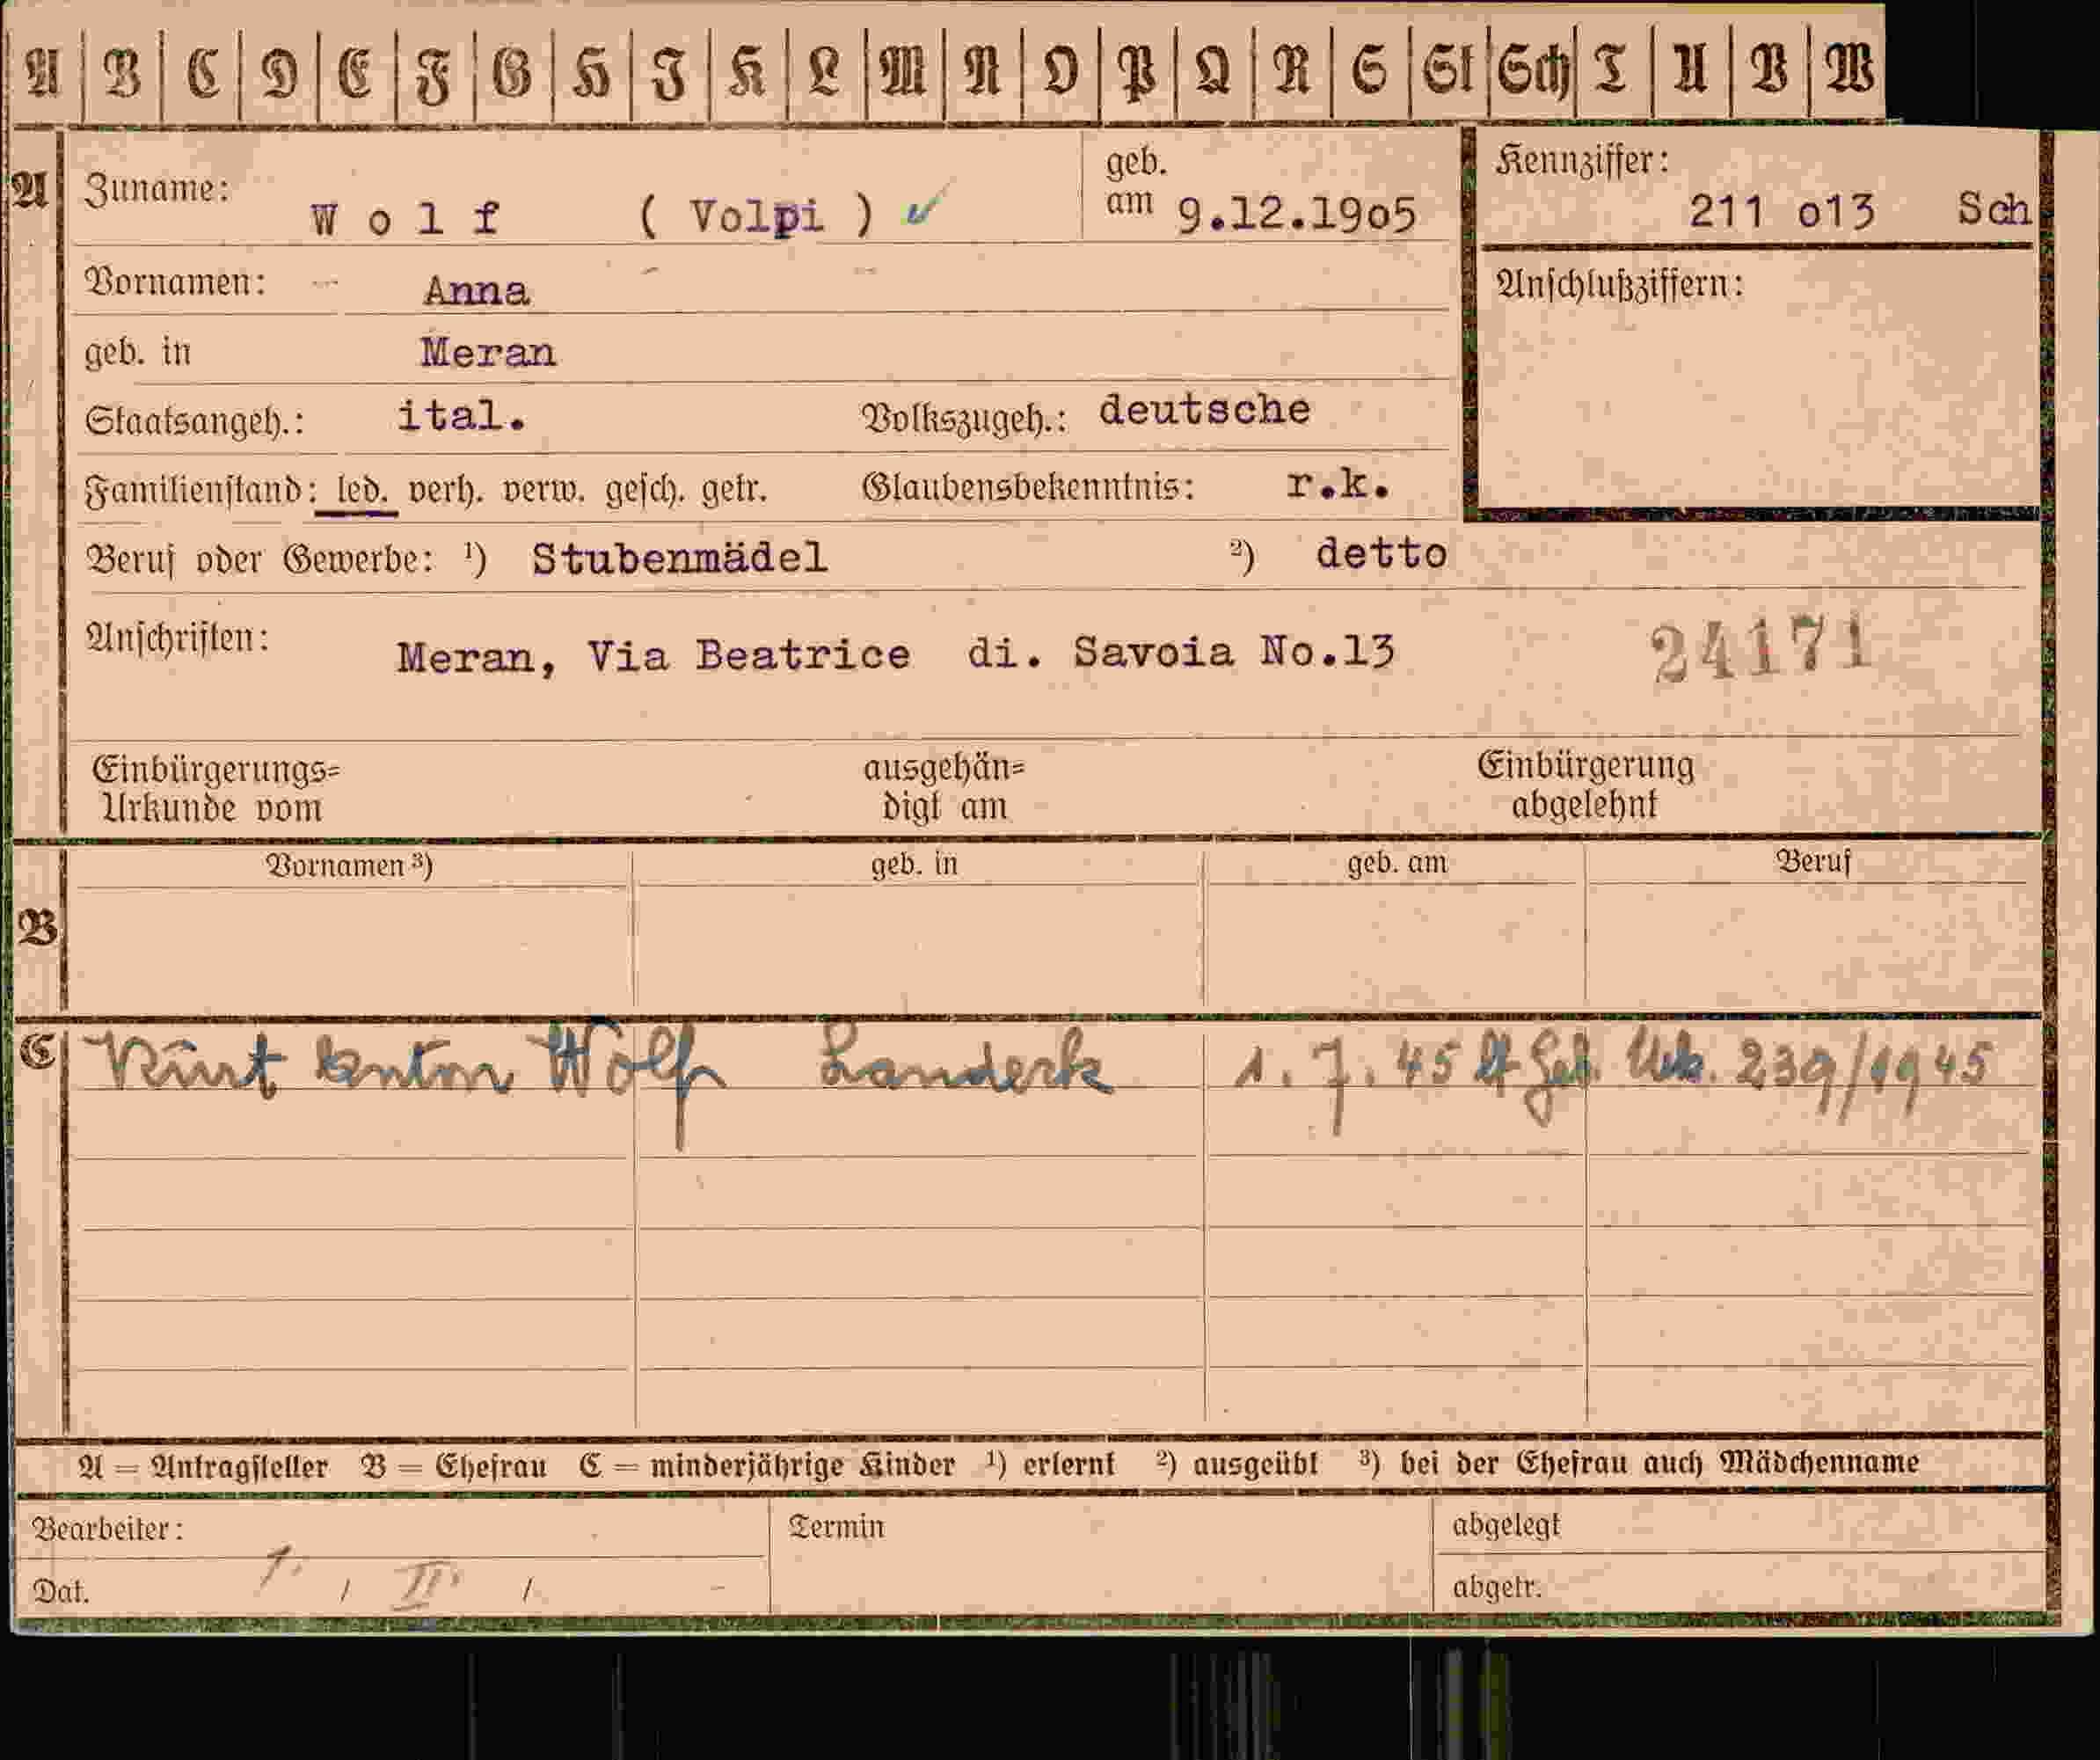 A B C D E F G H I K L M N O P Q R S St Sch T U V W
A
Zuname: W o l f ( Volpi ) ✓ geb. am 9.12.19o5
Kennziffer: 211 o13 Sch
Vornamen: Anna
Anschlußziffern:
geb. in Meran
Staatsangeh.: ital. Volkszugeh.: deutsche
Familienstand: led. verh. verw. gesch. getr. Glaubensbekenntnis: r.k.
Beruf oder Gewerbe: ¹) Stubenmädel ²) detto
Anschriften: Meran, Via Beatrice di. Savoia No.13 24171
Einbürgerungs= ausgehän= Einbürgerung
Urkunde vom digt am abgelehnt
Vornamen ³) geb. in geb. am Beruf
B
C Kurt Anton Wolf Landeck 1. 7. 45 lt Geb. Urk. 239/1945
A = Antragsteller B = Ehefrau C = minderjährige Kinder ¹) erlernt ²) ausgeübt ³) bei der Ehefrau auch Mädchenname
Bearbeiter: Termin abgelegt
Dat. 1. / II. / abgetr.